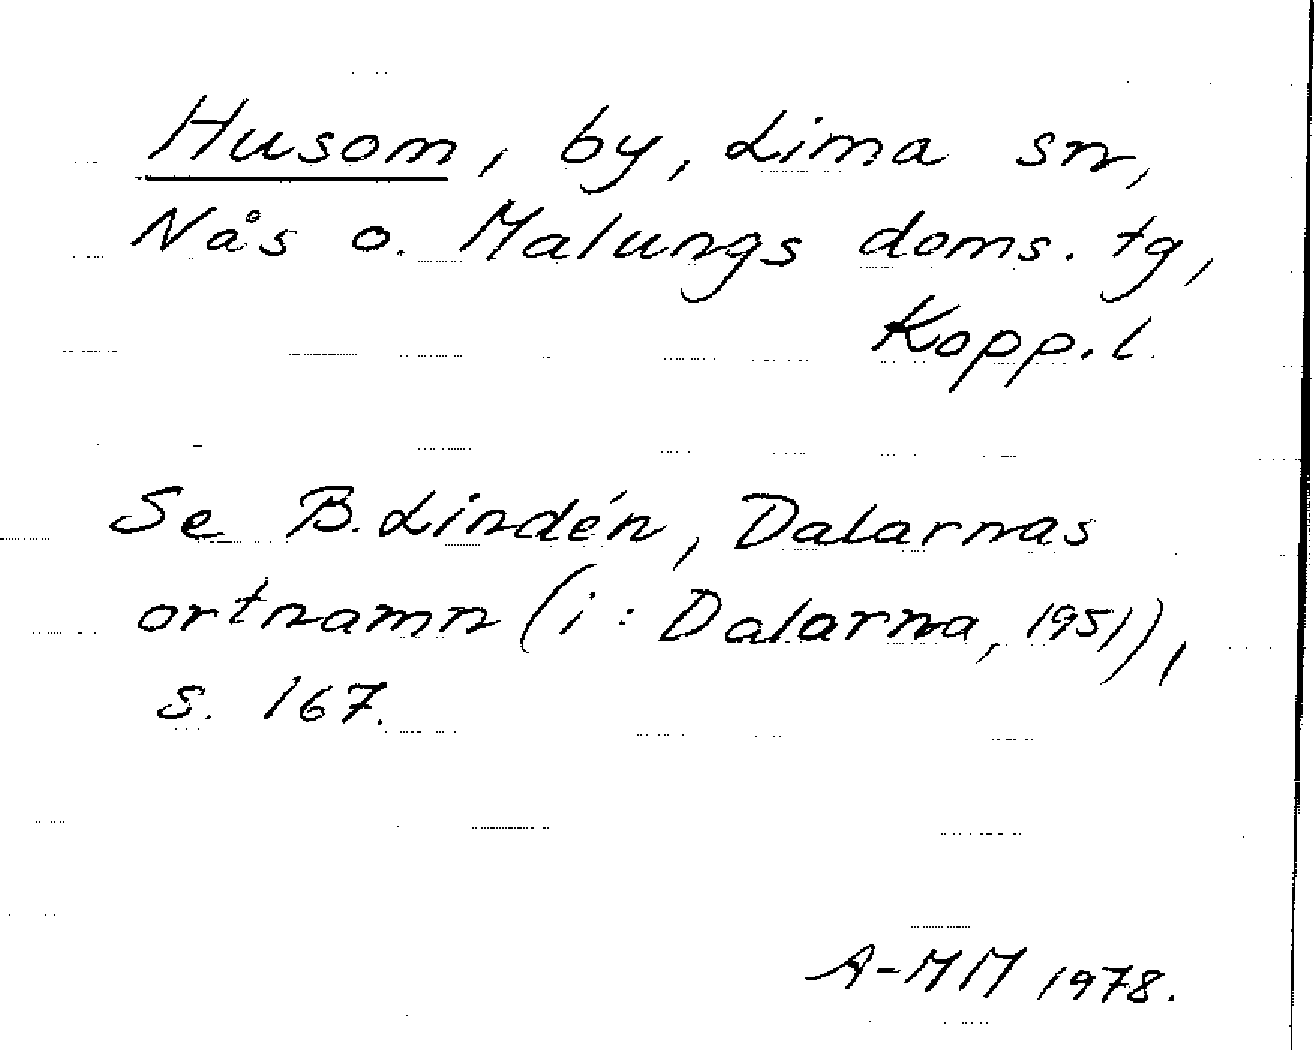 Husom, by, Lima sn,
Nås o. Malungs doms. tg,
Kopp. l.
Se B. Lindén, Dalarnas
ortnamn (i: Dalarna, 1951),
s. 167.
A-MM 1978.